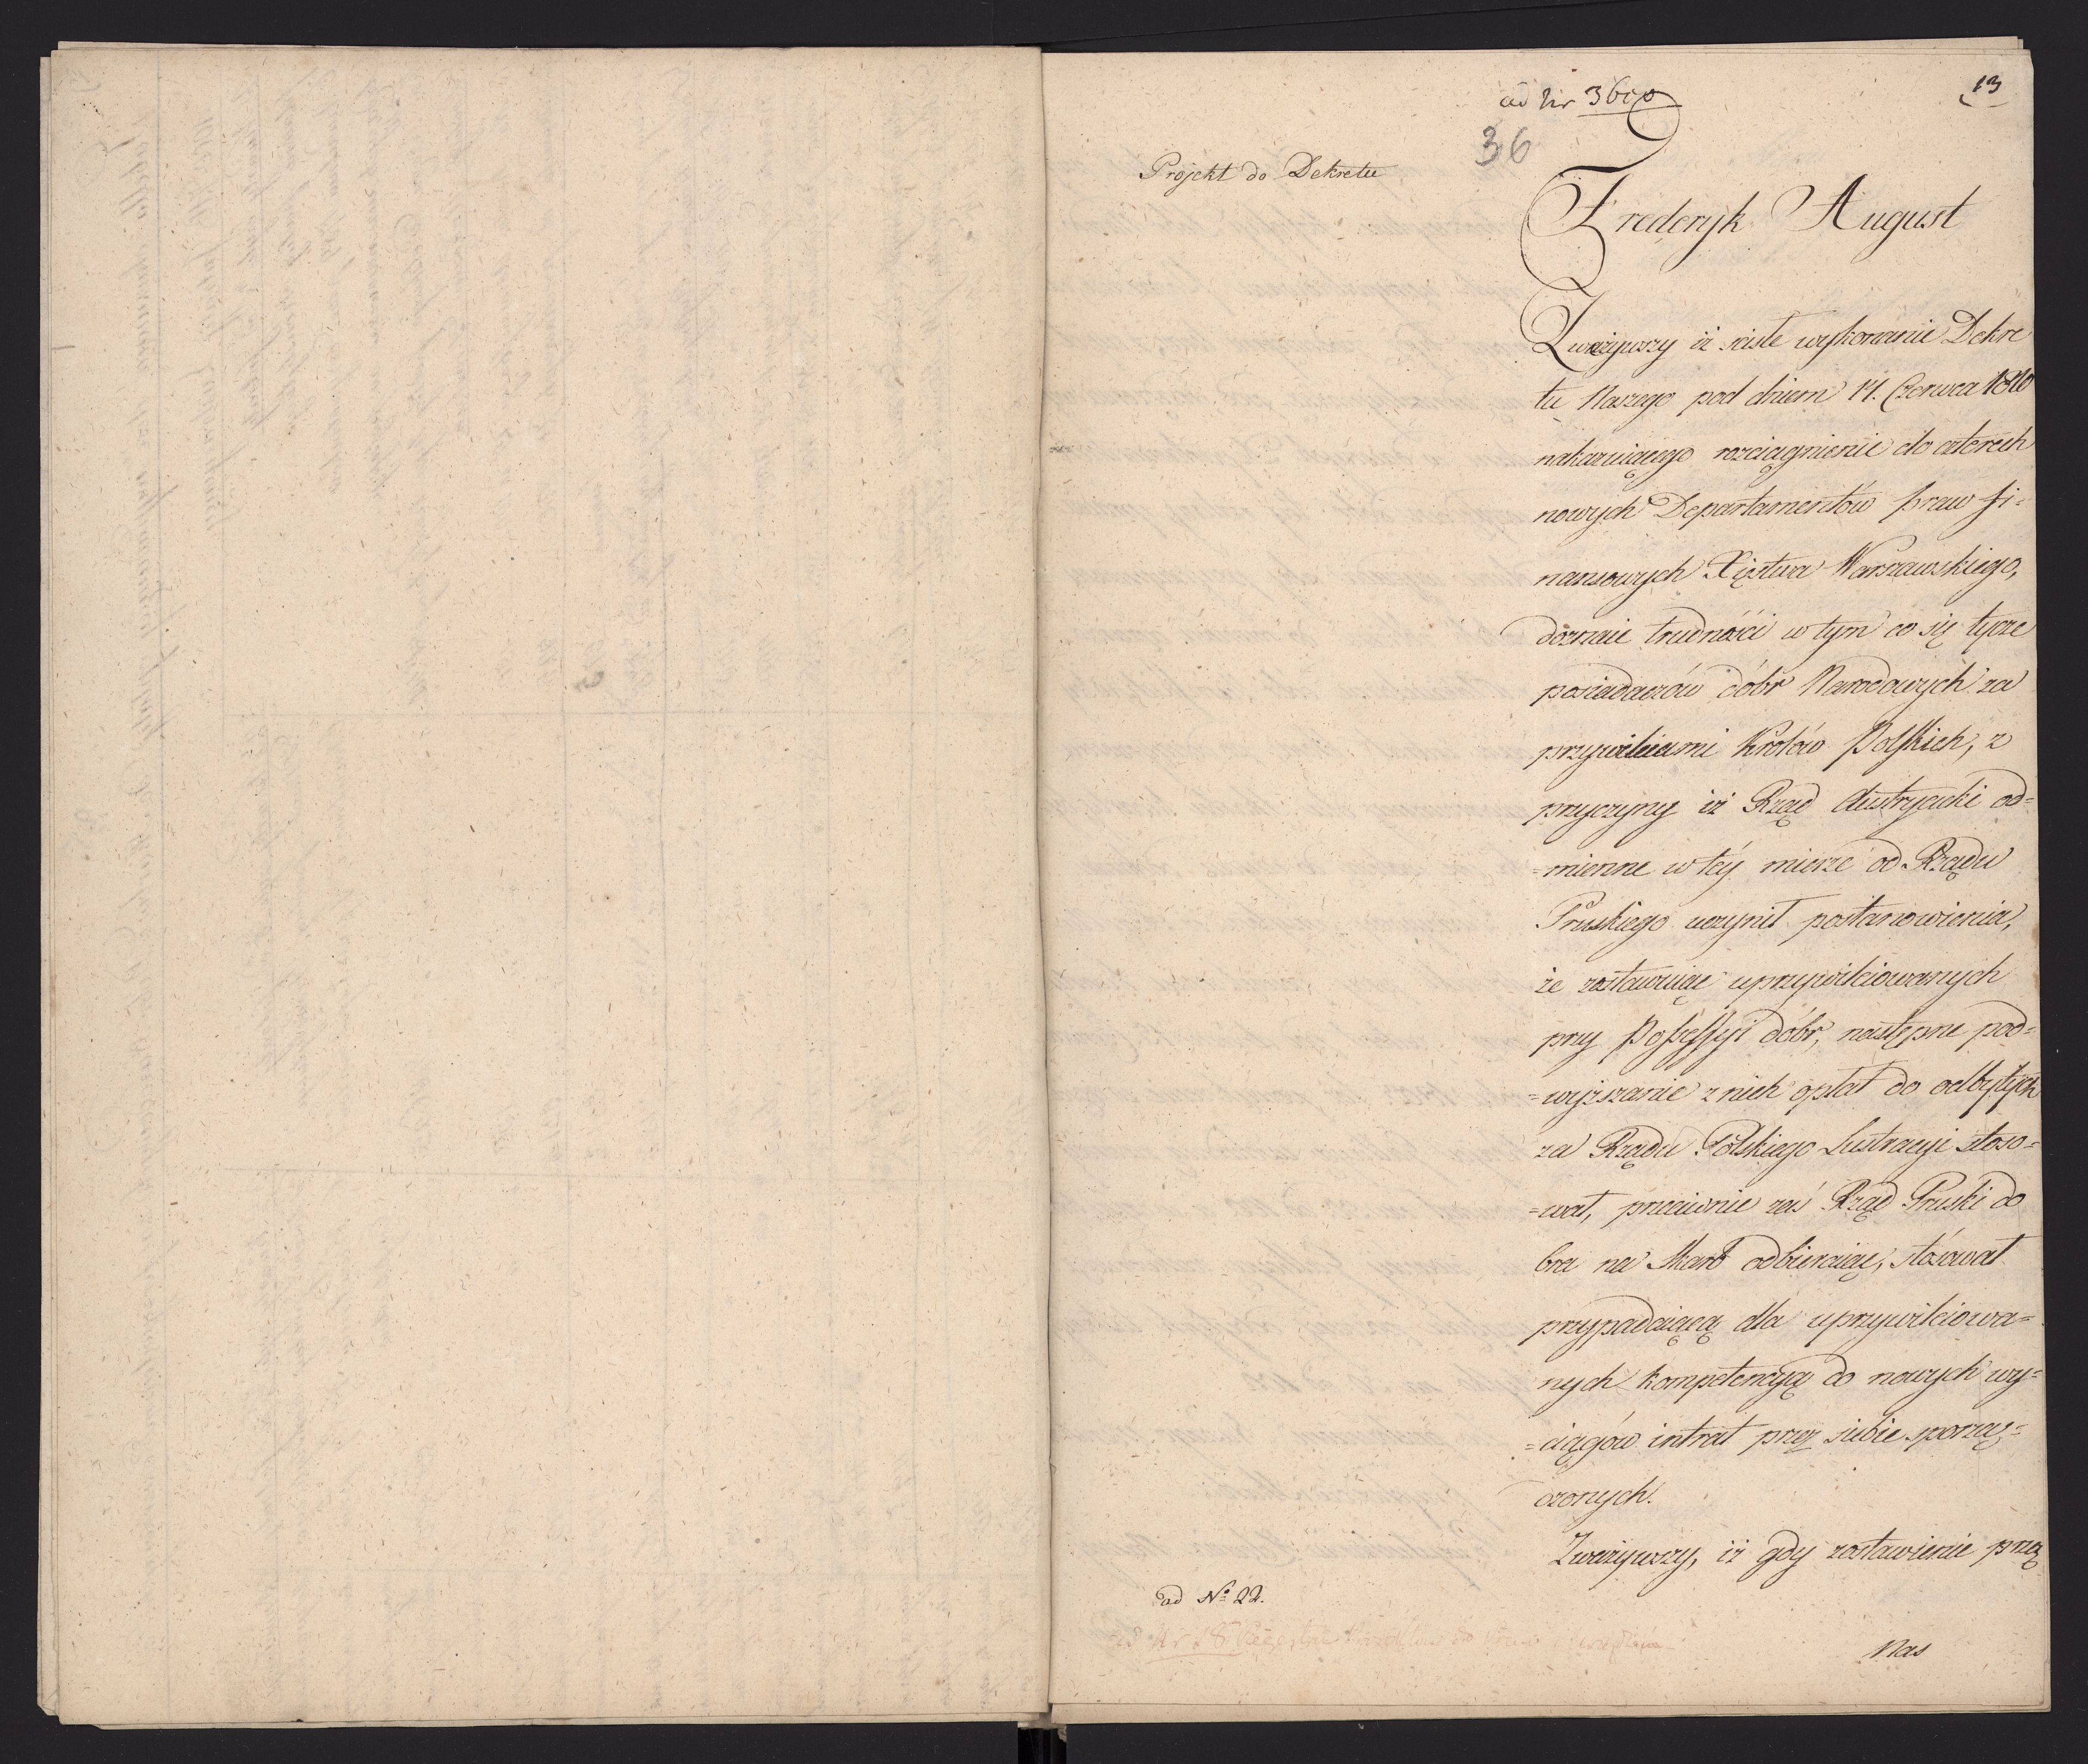 ad Nr 3600
13
36
Projekt do Dekretu
Frederyk August
Zważywszy iż ścisłe wykonanie Dekre
tu Naszego pod dniem 17. Czerwca 1810
nakazuiącego rozciągnienie do czterech
nowych Departamentów praw fi-
nansowych Xięstwa Warszawskiego,
doznaie trudności w tym co się tycze
posiadaczów dóbr Narodowych za
przywileiami Królów Polskich, z
przyczyny iż Rząd Austryacki od=
=mienne w téy mierze od Rządu
Pruskiego uczynił postanowienia,
że zostawuiąc uprzywileiowanych
przy Possessyi dóbr, następne pod=
=wyższanie z nich opłat do odbytych
za Rządu Polskiego Lustracyi stoso=
=wał, przeciwnie zaś Rząd Pruski do
bra na Skarb odbieraiąc, stósował
przypadaiącą dla uprzywileiowa=
nych kompetencyą do nowych wy=
=ciągów intrat przez siebie sporzą=
czonych.
Zważywszy, iż gdy zostawienie przez
ad No 22.
Nas